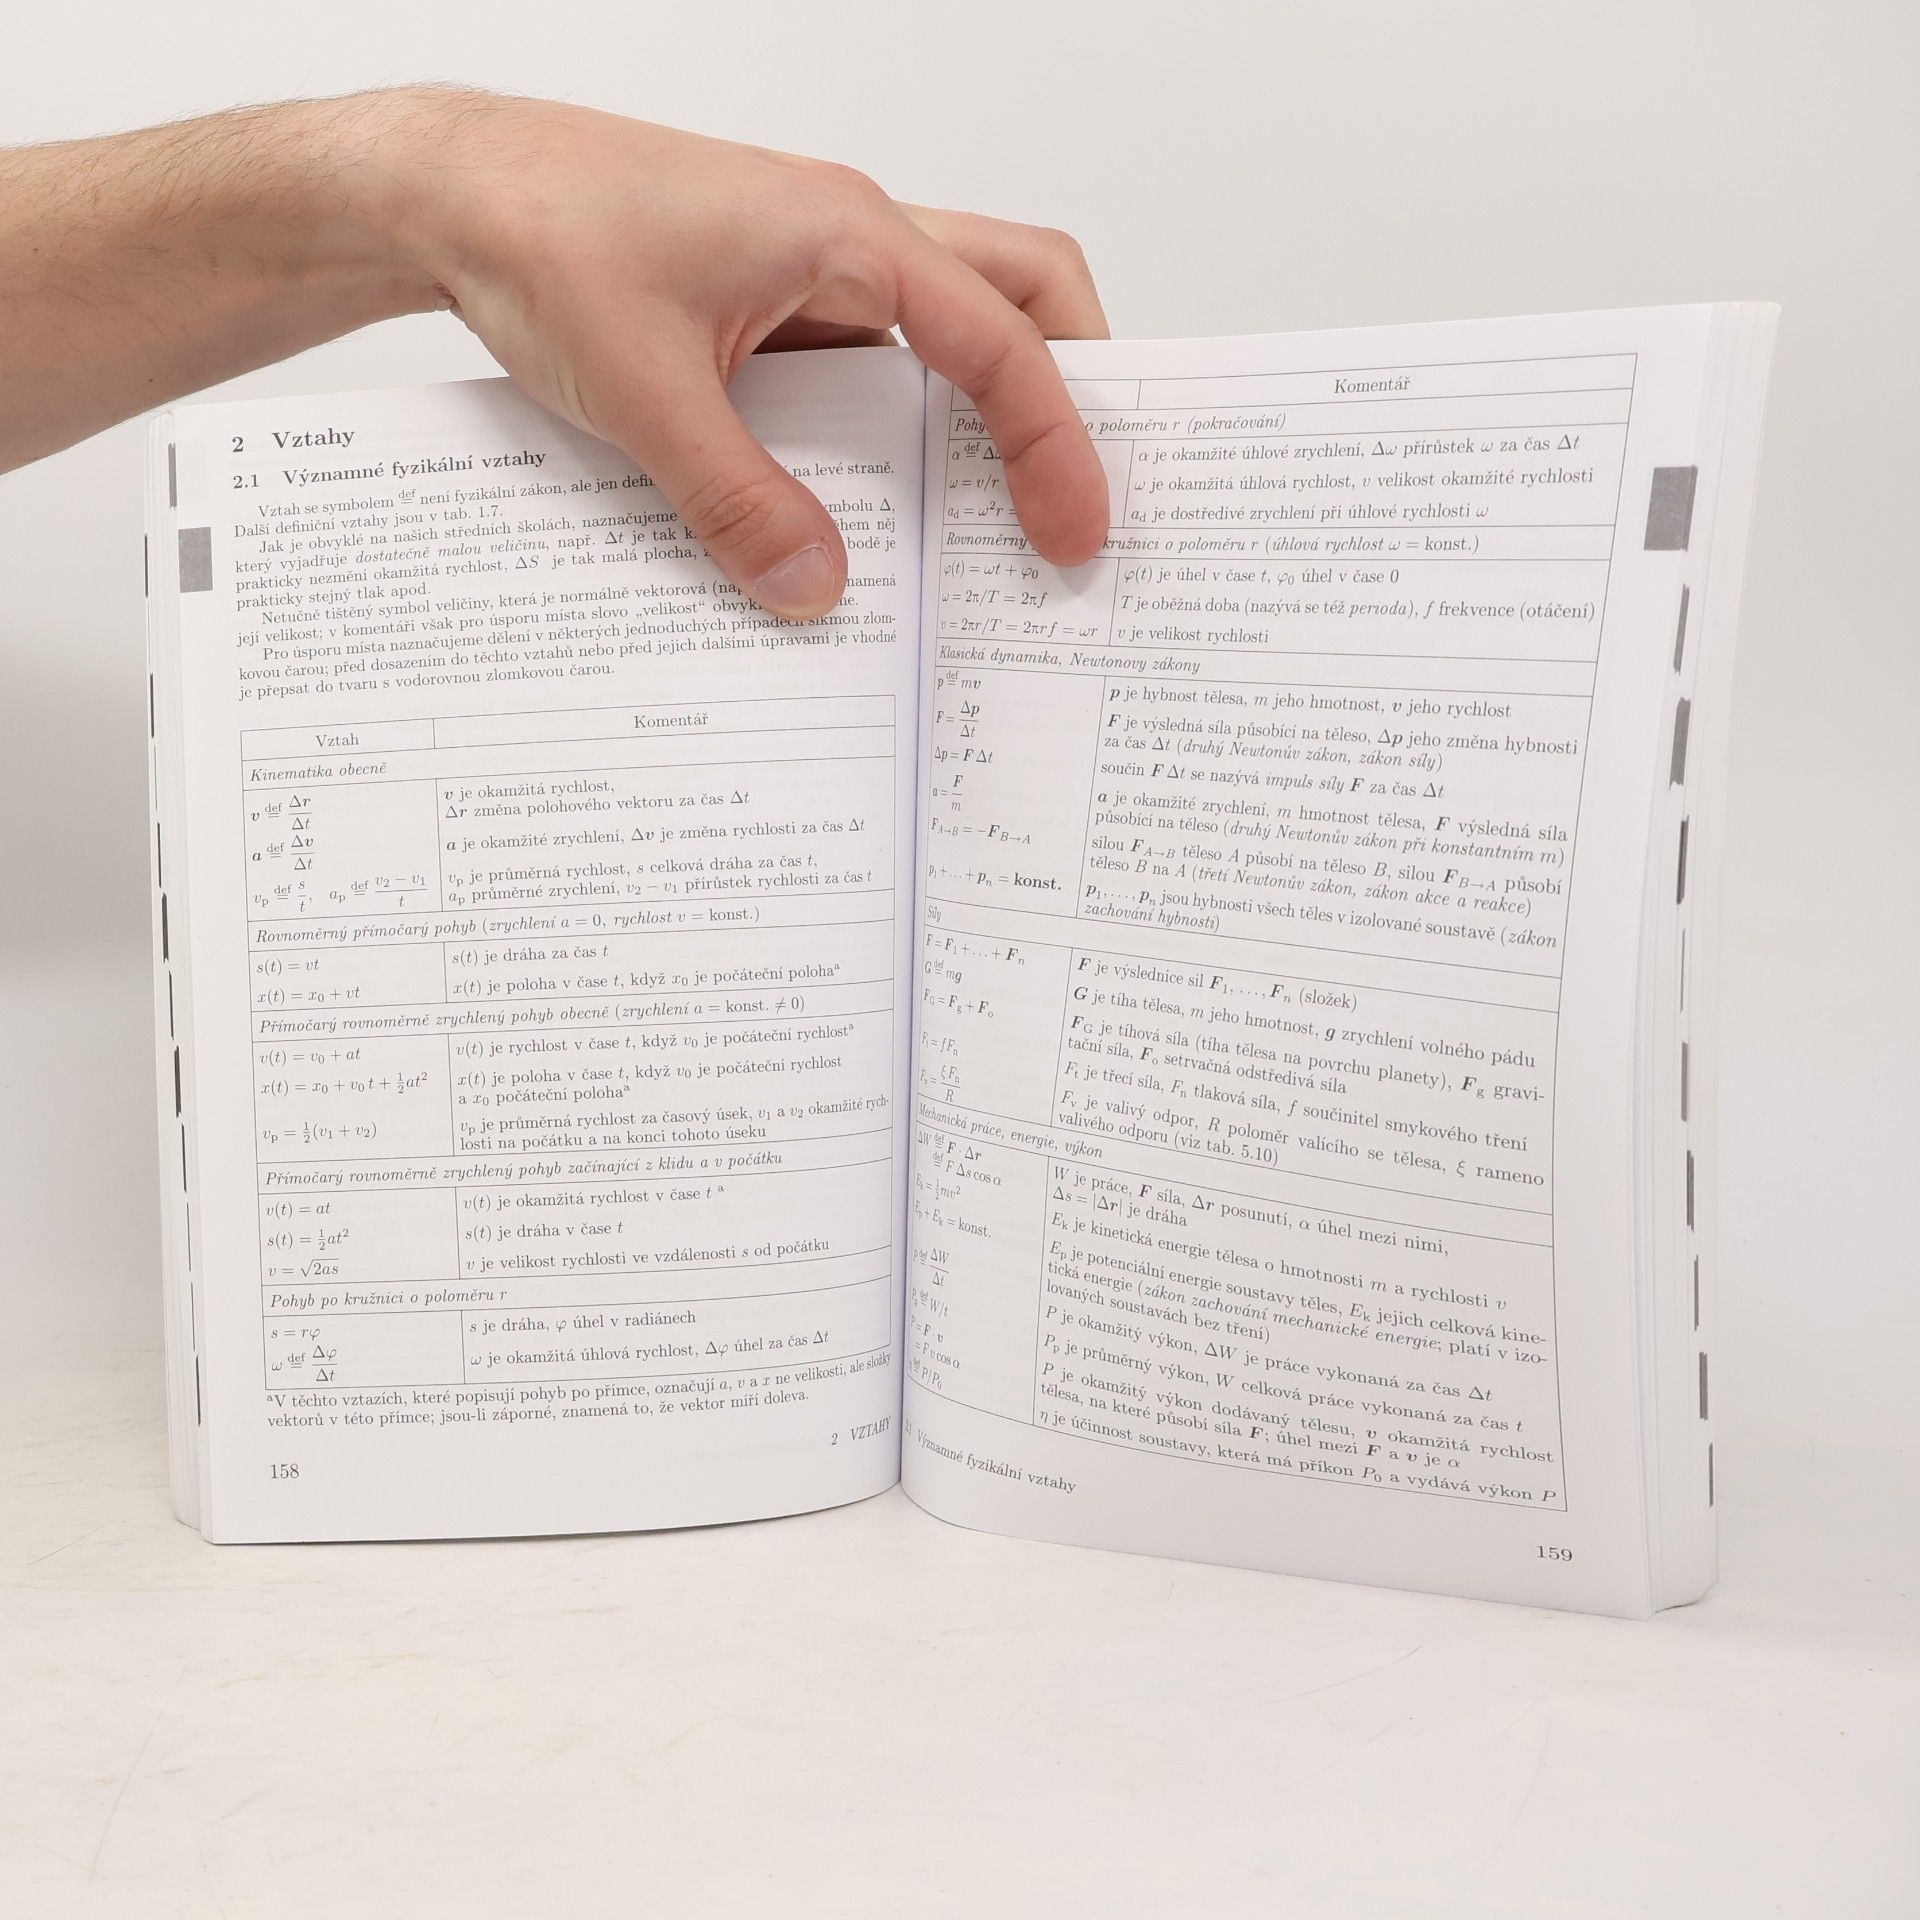 2 Vztahy
2.1 Významné fyzikální vztahy
Vztah se symbolem def= není fyzikální zákon, ale jen na levé straně.
Další definiční vztahy jsou v tab. 1.7.
Jak je obvyklé na našich středních školách, naznačujeme symbolu Δ,
který vyjadřuje dostatečně malou veličinu, např. Δt je tak během něj
prakticky nezmění okamžitá rychlost, ΔS je tak malá plocha, bodě je
prakticky stejný tlak apod.
Netučně tištěný symbol veličiny, která je normálně vektorová znamená
její velikost; v komentáři však pro úsporu místa slovo „velikost“
Pro úsporu místa naznačujeme dělení v některých jednoduchých případech šikmou zlom-
kovou čarou; před dosazením do těchto vztahů nebo před jejich dalšími úpravami je vhodné
je přepsat do tvaru s vodorovnou zlomkovou čarou.
Vztah Komentář
Kinematika obecně
v def= Δr/Δt v je okamžitá rychlost,
Δr změna polohového vektoru za čas Δt
a def= Δv/Δt a je okamžité zrychlení, Δv je změna rychlosti za čas Δt
vp def= s/t, ap def= (v2 − v1)/t vp je průměrná rychlost, s celková dráha za čas t,
ap průměrné zrychlení, v2 − v1 přírůstek rychlosti za čas t
Rovnoměrný přímočarý pohyb (zrychlení a = 0, rychlost v = konst.)
s(t) = vt s(t) je dráha za čas t
x(t) = x0 + vt x(t) je poloha v čase t, když x0 je počáteční polohaa
Přímočarý rovnoměrně zrychlený pohyb obecně (zrychlení a = konst. ≠ 0)
v(t) = v0 + at v(t) je rychlost v čase t, když v0 je počáteční rychlosta
x(t) = x0 + v0t + ½at² x(t) je poloha v čase t, když v0 je počáteční rychlost
a x0 počáteční polohaa
vp = ½(v1 + v2) vp je průměrná rychlost za časový úsek, v1 a v2 okamžité rych-
losti na počátku a na konci tohoto úseku
Přímočarý rovnoměrně zrychlený pohyb začínající z klidu a v počátku
v(t) = at v(t) je okamžitá rychlost v čase t a
s(t) = ½at² s(t) je dráha v čase t
v = √2as v je velikost rychlosti ve vzdálenosti s od počátku
Pohyb po kružnici o poloměru r
s = rφ s je dráha, φ úhel v radiánech
ω def= Δφ/Δt ω je okamžitá úhlová rychlost, Δφ úhel za čas Δt
aV těchto vztazích, které popisují pohyb po přímce, označují a, v a x ne velikosti, ale složky
vektorů v této přímce; jsou-li záporné, znamená to, že vektor míří doleva.
2 VZTAHY
158
Komentář
o poloměru r (pokračování)
α def= α je okamžité úhlové zrychlení, Δω přírůstek ω za čas Δt
ω = v/r ω je okamžitá úhlová rychlost, v velikost okamžité rychlosti
ad = ω²r ad je dostředivé zrychlení při úhlové rychlosti ω
Rovnoměrný kružnici o poloměru r (úhlová rychlost ω = konst.)
φ(t) = ωt + φ0 φ(t) je úhel v čase t, φ0 úhel v čase 0
ω = 2π/T = 2πf T je oběžná doba (nazývá se též perioda), f frekvence (otáčení)
v = 2πr/T = 2πrf = ωr v je velikost rychlosti
Klasická dynamika, Newtonovy zákony
p def= mv p je hybnost tělesa, m jeho hmotnost, v jeho rychlost
F = Δp/Δt F je výsledná síla působící na těleso, Δp jeho změna hybnosti
za čas Δt (druhý Newtonův zákon, zákon síly)
Δp = F Δt součin F Δt se nazývá impuls síly F za čas Δt
a = F/m a je okamžité zrychlení, m hmotnost tělesa, F výsledná síla
působící na těleso (druhý Newtonův zákon při konstantním m)
FA→B = −FB→A silou FA→B těleso A působí na těleso B, silou FB→A působí
těleso B na A (třetí Newtonův zákon, zákon akce a reakce)
p1 + … + pn = konst. p1, …, pn jsou hybnosti všech těles v izolované soustavě (zákon
zachování hybnosti)
Síly
F = F1 + … + Fn F je výslednice sil F1, …, Fn (složek)
G def= mg G je tíha tělesa, m jeho hmotnost, g zrychlení volného pádu
FG = Fg + Fo FG je tíhová síla (tíha tělesa na povrchu planety), Fg gravi-
tační síla, Fo setrvačná odstředivá síla
Ft = fFn Ft je třecí síla, Fn tlaková síla, f součinitel smykového tření
Fv = ξFn/R Fv je valivý odpor, R poloměr valícího se tělesa, ξ rameno
valivého odporu (viz tab. 5.10)
Mechanická práce, energie, výkon
ΔW def= F · Δr W je práce, F síla, Δr posunutí, α úhel mezi nimi,
def= F Δs cos α Δs = |Δr| je dráha
Ek = ½mv² Ek je kinetická energie tělesa o hmotnosti m a rychlosti v
Ep + Ek = konst. Ep je potenciální energie soustavy těles, Ek jejich celková kine-
tická energie (zákon zachování mechanické energie; platí v izo-
lovaných soustavách bez tření)
P def= ΔW/Δt P je okamžitý výkon, ΔW je práce vykonaná za čas Δt
Pp def= W/t Pp je průměrný výkon, W celková práce vykonaná za čas t
P = F · v P je okamžitý výkon dodávaný tělesu, v okamžitá rychlost
= F v cos α tělesa, na které působí síla F; úhel mezi F a v je α
η def= P/P0 η je účinnost soustavy, která má příkon P0 a vydává výkon P
2.1 Významné fyzikální vztahy
159